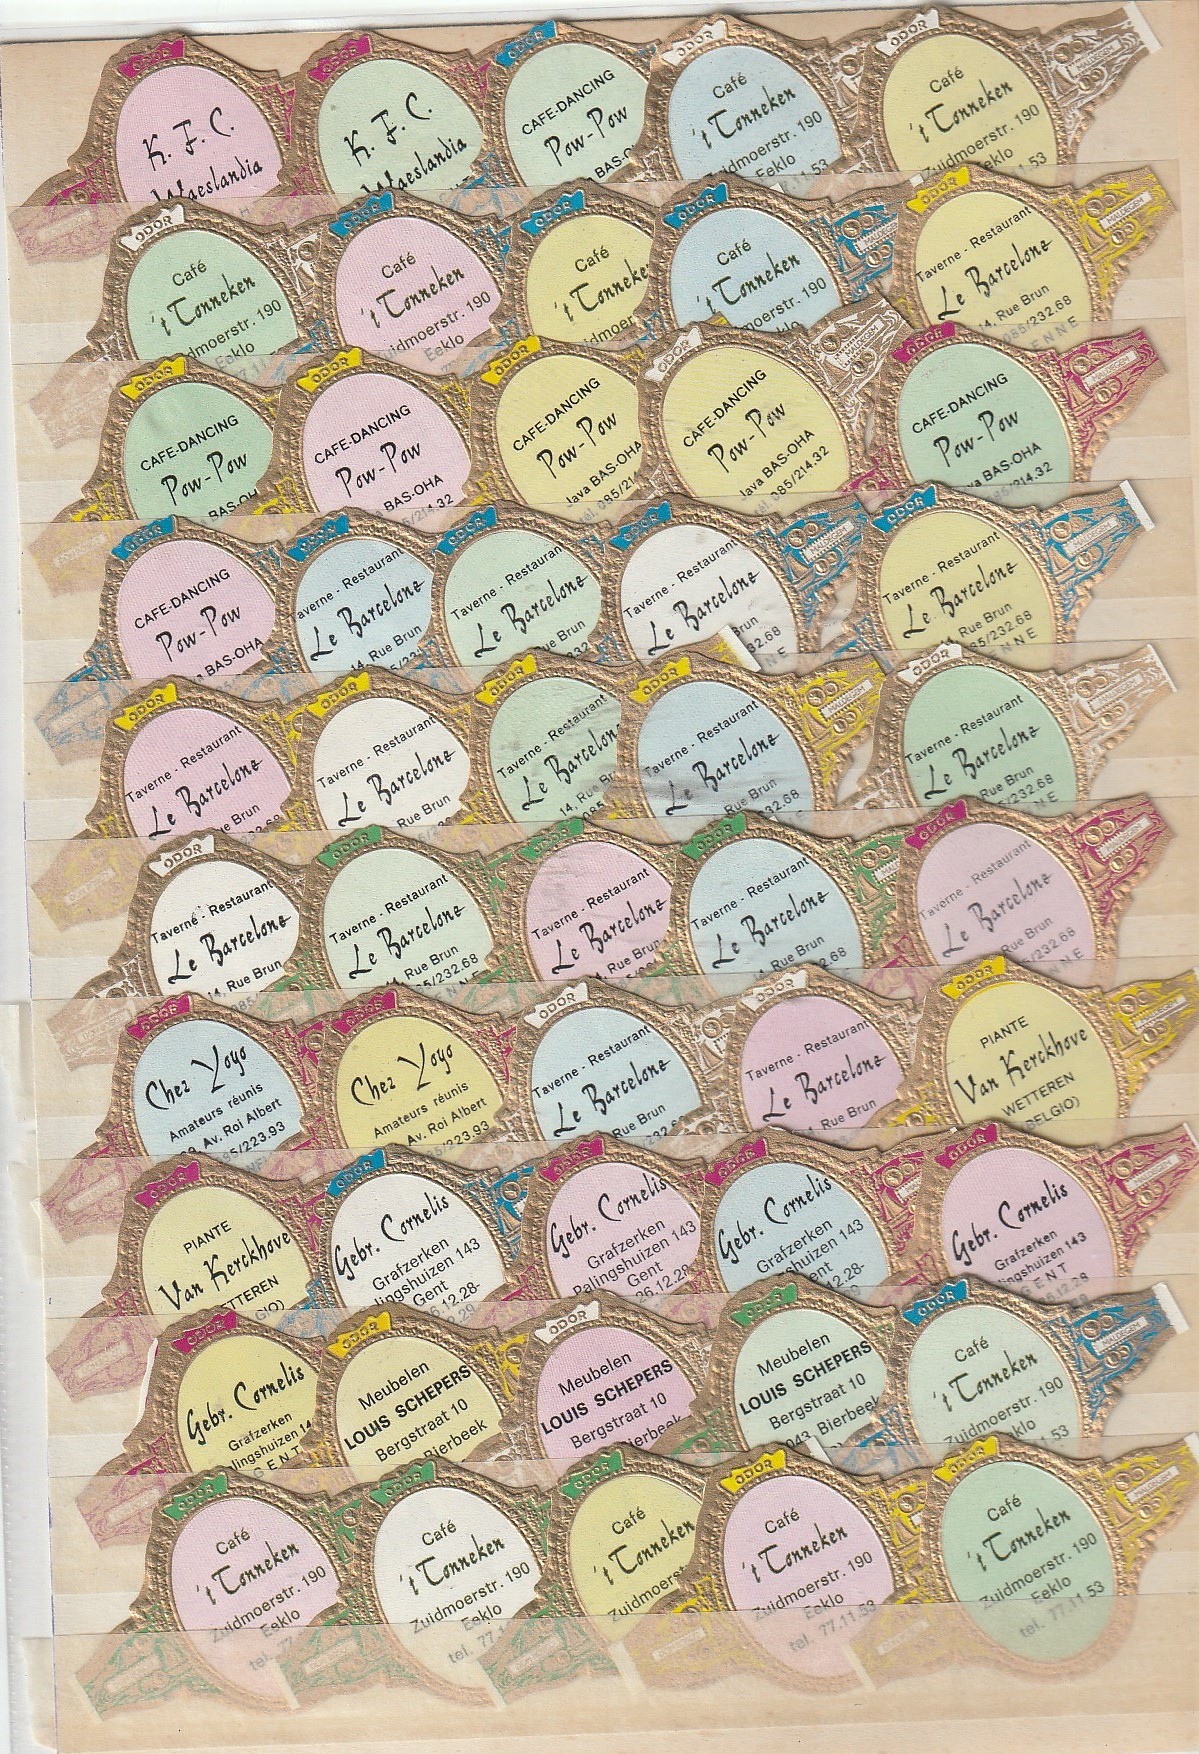 ODOR
K. F. C.
Waeslandia
ODOR
K. F. C.
Waeslandia
ODOR
CAFE-DANCING
Pow-Pow
BAS-O
ODOR
Café
't Tonneken
Zuidmoerstr. 190
Eeklo
1.53
ODOR
MALDEGEM
Café
't Tonneken
Zuidmoerstr. 190
Eeklo
1.53
ODOR
Café
't Tonneken
dmoerstr. 190
Eeklo
77.11
ODOR
Café
't Tonneken
Zuidmoerstr. 190
Eeklo
ODOR
Café
't Tonneke
idmoer
ODOR
Café
't Tonneken
Zuidmoerstr. 190
Eeklo
ODOR
MALDEGEM
Taverne - Restaurant
Le Barcelone
14, Rue Brun
085/232.68
ENNE
ODOR
CAFE-DANCING
Pow-Pow
BAS-OH
ODOR
CAFE-DANCING
Pow-Pow
BAS-OHA
5/214.32
ODOR
CAFE-DANCING
Pow-Pow
Java BAS-OHA
tél. 085/21
ODOR
MALDEGEM
CAFE-DANCING
Pow-Pow
Java BAS-OHA
tél. 085/214.32
ODOR
CAFE-DANCING
Pow-Pow
va BAS-OHA
5/214.32
ODOR
CAFE-DANCING
Pow-Pow
BAS-OHA
ODOR
Taverne - Restaurant
Le Barcelone
14, Rue Brun
ODOR
Taverne - Restaurant
Le Barcelone
Rue Brun
ODOR
Taverne - Restaurant
Le Barcelone
Brun
32.68
NE
ODOR
Taverne - Restaurant
Le Barcelone
Rue Brun
5/232.68
NNE
ODOR
Taverne - Restaurant
Le Barcelone
ue Brun
ODOR
Taverne - Restaurant
Le Barcelone
Rue Brun
ODOR
Taverne - Restaurant
Le Barcelon
14, Rue Br
085
ODOR
MALDEGEM
Taverne - Restaurant
Le Barcelone
Rue Brun
232.68
ODOR
Taverne - Restaurant
Le Barcelone
Rue Brun
5/232.68
NNE
ODOR
Taverne - Restaurant
Le Barcelone
14, Rue Brun
085
ODOR
Taverne - Restaurant
Le Barcelone
Rue Brun
85/232.68
ENNE
ODOR
Taverne - Restaurant
Le Barcelone
14, Rue Brun
ODOR
Taverne - Restaurant
Le Barcelone
Rue Brun
85/232.68
ENNE
ODOR
Taverne - Restaurant
Le Barcelone
Rue Brun
85/232.68
ENNE
ODOR
Chez Yoyo
Amateurs réunis
Av. Roi Albert
85/223.93
ODOR
Chez Yoyo
Amateurs réunis
Av. Roi Albert
5/223.93
ODOR
Taverne - Restaurant
Le Barcelone
Rue Brun
ODOR
Taverne - Restaurant
Le Barcelone
Rue Brun
ODOR
PIANTE
Van Kerckhove
WETTEREN
BELGIO)
ODOR
PIANTE
Van Kerckhove
TTEREN
GIO)
ODOR
Gebr. Cornelis
Grafzerken
lingshuizen 143
Gent
6.12.28-
ODOR
Gebr. Cornelis
Grafzerken
Palingshuizen 143
Gent
26.12.28
ODOR
Gebr. Cornelis
Grafzerken
gshuizen 143
Gent
12.28-
ODOR
Gebr. Cornelis
Grafzerken
lingshuizen 143
GENT
12.28
ODOR
Gebr. Cornelis
Grafzerken
lingshuizen 14
GENT
ODOR
Meubelen
LOUIS SCHEPERS
Bergstraat 10
Bierbeek
ODOR
Meubelen
LOUIS SCHEPERS
Bergstraat 10
ierbeek
ODOR
Meubelen
LOUIS SCHEPERS
Bergstraat 10
3043 Bierbeek
ODOR
MALDEGEM
Café
't Tonneken
Zuidmoerstr. 190
Eeklo
1.53
ODOR
Café
't Tonneken
Zuidmoerstr. 190
Eeklo
tel. 77
ODOR
Café
't Tonneken
Zuidmoerstr. 190
Eeklo
tel. 77.1
ODOR
Café
't Tonneken
Zuidmoerst
ODOR
Café
't Tonneken
Zuidmoerstr. 190
Eeklo
tel. 77.11.53
ODOR
Café
't Tonneken
Zuidmoerstr. 190
Eeklo
tel. 77.11.53